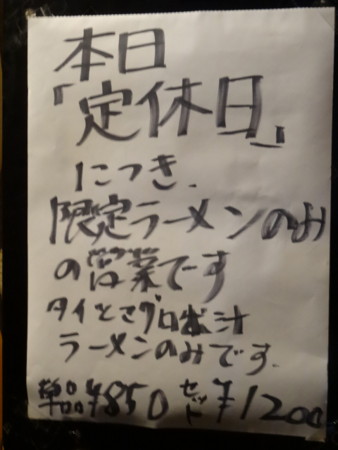 本日
「定休日」
につき、
限定ラーメンのみ
の営業でーす
タイとマグロ出汁
ラーメンのみです。
単品¥850 セット¥1200